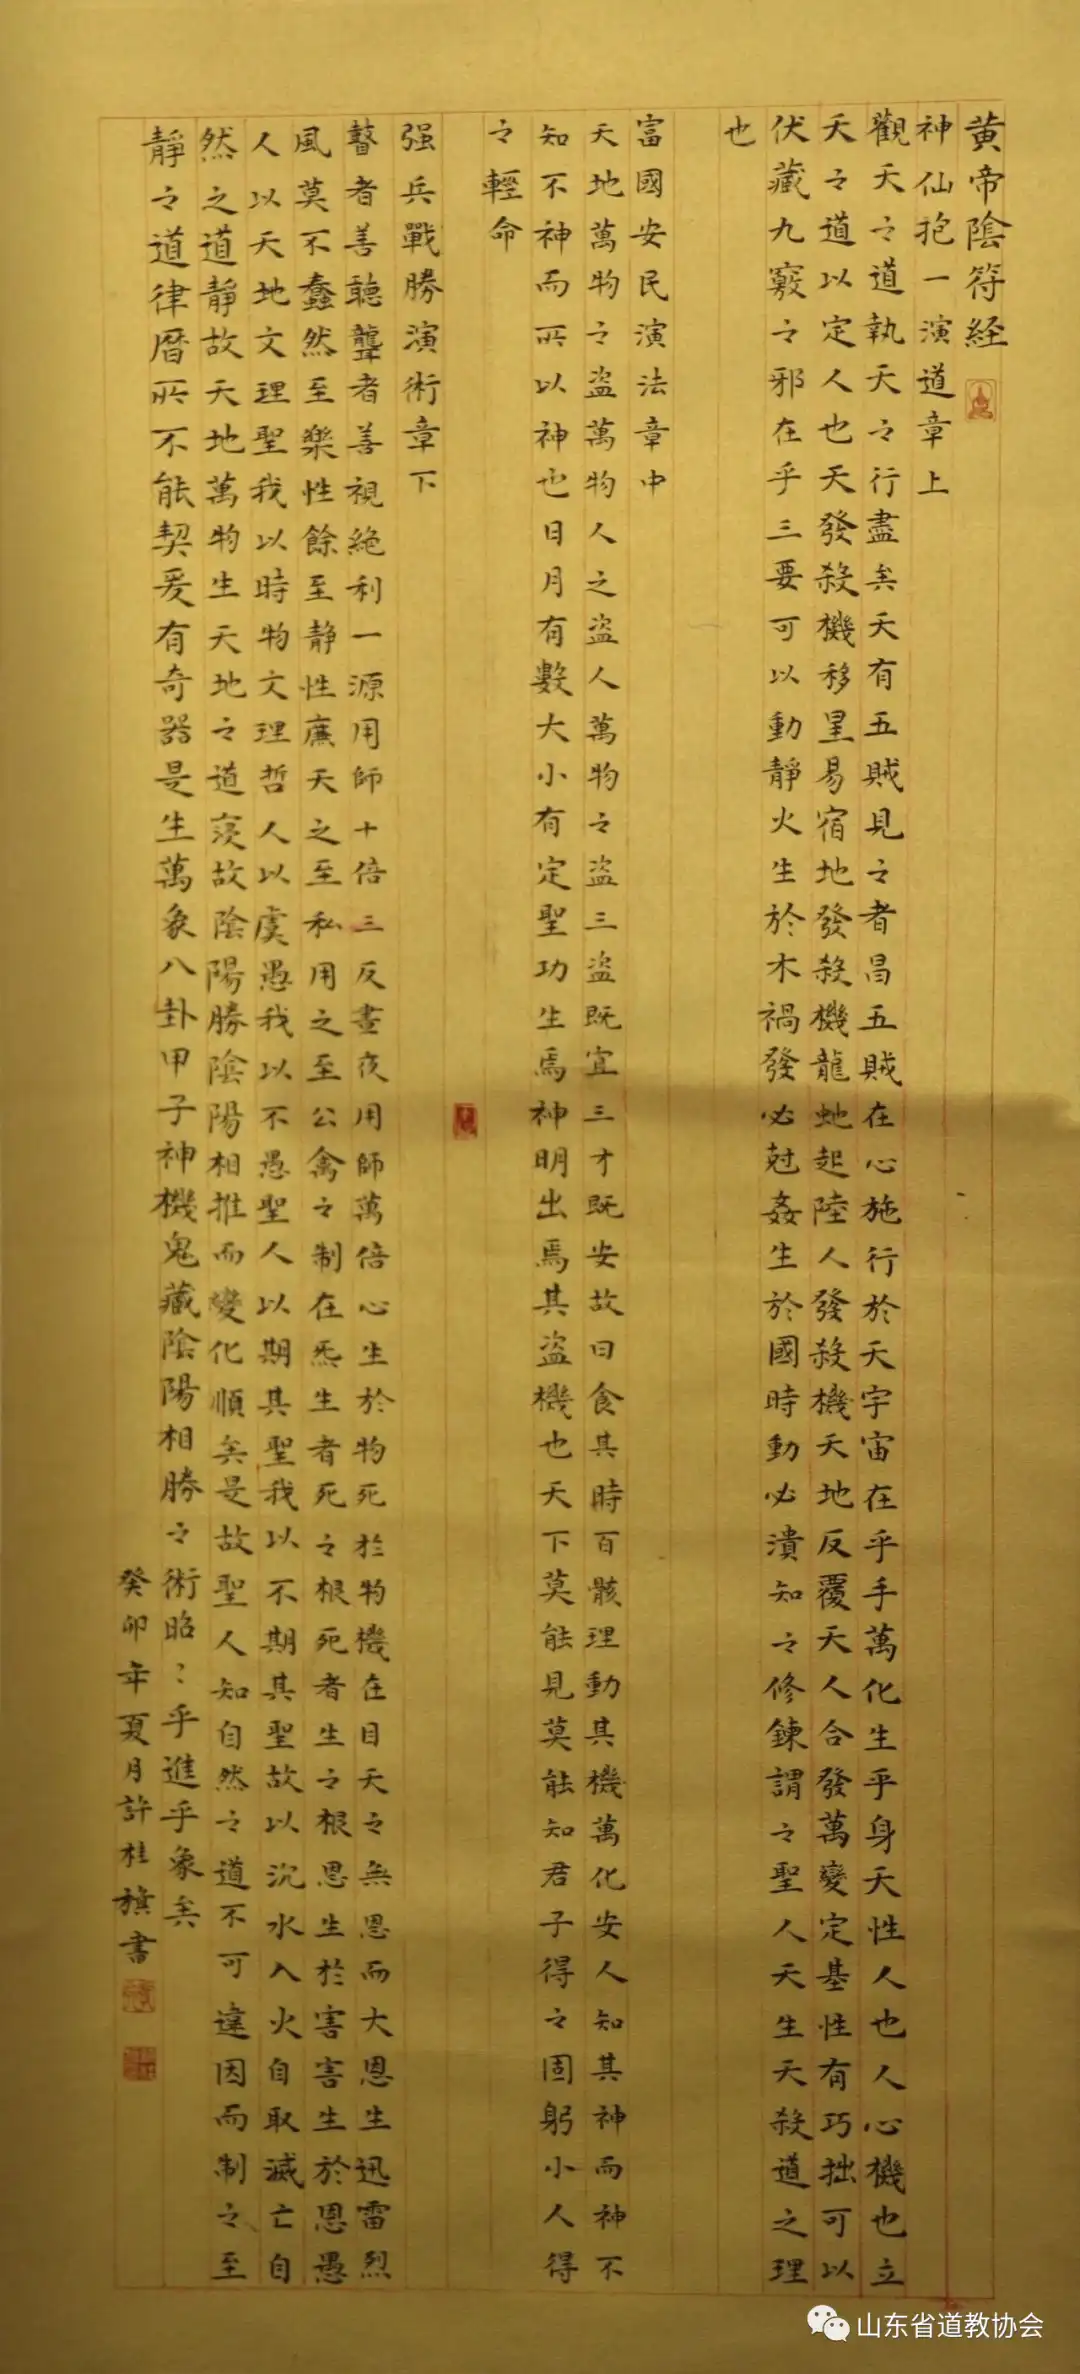 黄帝陰符経
神仙抱一演道章上
觀天之道執天之行盡矣天有五賊見之者昌五賊在心施行於天宇宙在乎手萬化生乎身天性人也人心機也立
天之道以定人也天發殺機移星易宿地發殺機龍虵起陸人發殺機天地反覆天人合發萬變定基性有巧拙可以
伏藏九竅之邪在乎三要可以動靜火生於木禍發必尅姦生於國時動必潰知之修鍊謂之聖人天生天殺道之理
也
富國安民演法章中
天地萬物之盗萬物人之盗人萬物之盗三盗既宜三才既安故曰食其時百骸理動其機萬化安人知其神而神不
知不神而所以神也日月有數大小有定聖功生焉神明出焉其盗機也天下莫能見莫能知君子得之固躬小人得
之輕命
强兵戰勝演術章下
瞽者善聽聾者善視絶利一源用師十倍三反晝夜用師萬倍心生於物死於物機在目天之無恩而大恩生迅雷烈
風莫不蠢然至樂性餘至静性廉天之至私用之至公禽之制在炁生者死之根死者生之根恩生於害害生於恩愚
人以天地文理聖我以時物文理哲人以虞愚我以不愚聖人以期其聖我以不期其聖故以沉水入火自取滅亡自
然之道靜故天地萬物生天地之道寖故陰陽勝陰陽相推而變化順矣是故聖人知自然之道不可違因而制之至
靜之道律曆所不能契爰有奇器是生萬象八卦甲子神機鬼藏陰陽相勝之術昭〻乎進乎象矣
癸卯年夏月許桂旗書
山东省道教协会